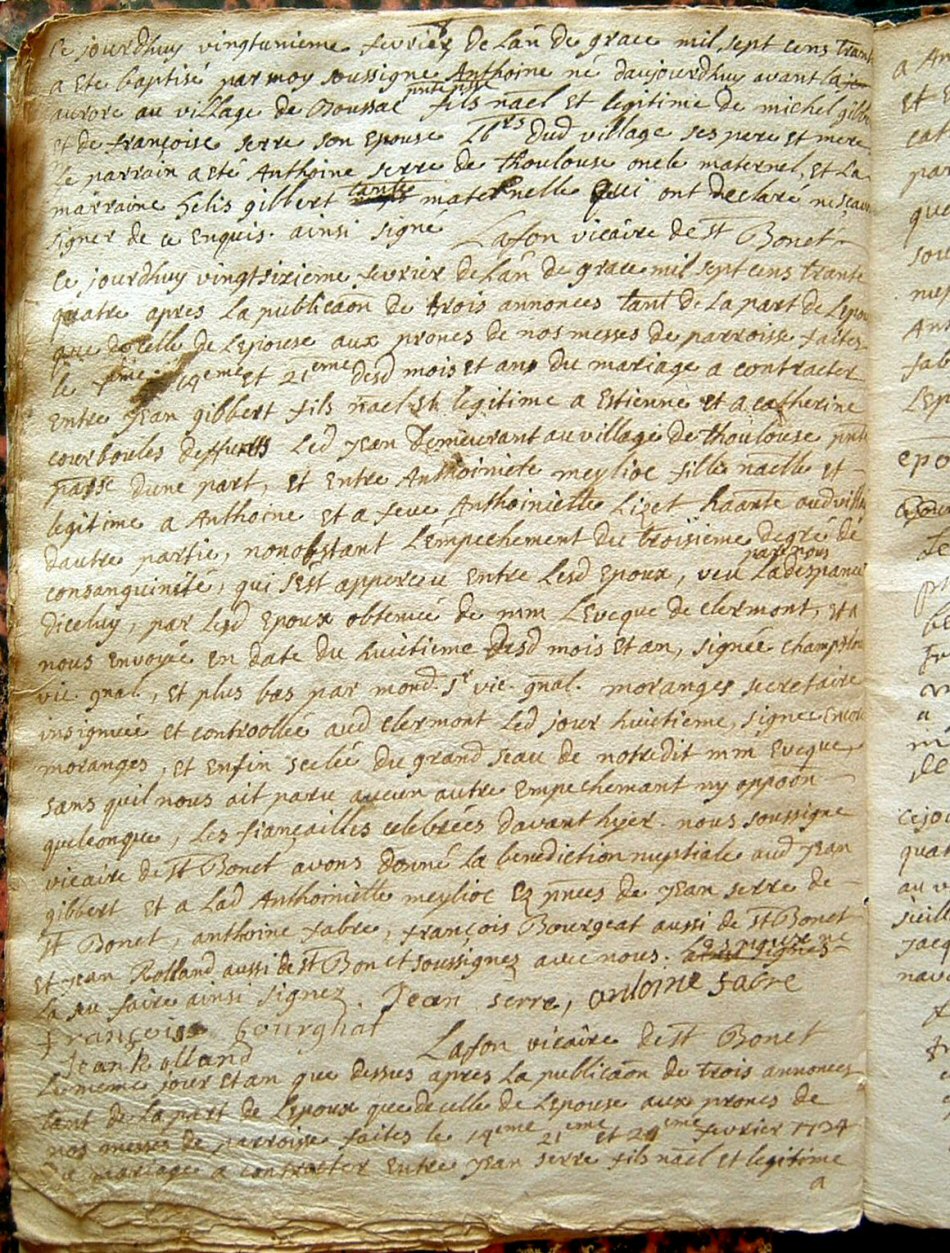 Ce jourdhuy vingtunieme fevrier de lan de grace mil sept cens trant
a eté baptisé par moy soussigné Anthoine né daujourdhuy avant la
aurore au village de Boussac fils nael et legitime de michel gibb
et de françoise serre son epouse dud village ses pere et mere
Le parrain a eté Anthoine serre de thoulouse oncle maternel, et la
marraine helis gibbert tante maternelle qui ont declaré ne sçav
signer de ce enquis. ainsi signé Lafon vicaire de st Bonet
Ce jourdhuy vingtsixieme fevrier de lan de grace mil sept cens trante
quatre apres la publicaon de trois annonces tant de la part de lepou
que de celle de lepouse aux prones de nos messes de parroisse faites
le 14eme et 21eme desd mois et an du mariage a contracter
Entre jean gibbert fils nael et legitime a Estienne et a catherine
courboules deffunts led jean demeurant au village de thoulouse pnte
parsse dune part, et entre Anthoiniete meylioc fille naelle et
legitime a Anthoine et a feue Anthoinielle Lizet haante aud villa
dautre partie, nonobstant lempechement du troisieme degré de
consanguinité, qui sest apperceu entre lesd epoux, veu la dispance
par nous
diceluy, par lesd epoux obtenue de mm leveque de clermont, et a
nous envoyée en date du huictieme desd mois et an, signée champ
vic. gnal, et plus bas par mond. sr vic. gnal. moranges secretaire
insignuée et controollée aud clermont led jour huictieme, signee encore
moranges, et enfin scelée du grand seau de notredit mm eveque
sans quil nous ait paru aucun autre empechemant ny oppoon
quelconque, les fiançailles celebrées davant hyer. nous soussigne
vicaire de st Bonet avons donné la benediction nuptiale aud jean
gibbert et a lad Anthoinielle meylioc ez pnces de jean serre de
st Bonet, anthoine fabre, françois Bourgeat aussi de st Bonet
et jean Rolland aussi de st Bonet soussignez avec nous. ne
la su faire ainsi signez. Jean serre, antoine fabre
françois bourghat
jean Rolland Lafon vicaire de st Bonet
Le meme jour et an que dessus apres la publicaon de trois annonces
tant de la part de lepoux que de celle de lepouse aux prones de
nos messes de parroisse faites le 14eme 21eme et 24eme fevrier 1734
du mariage a contracter entre jean serre fils nael et legitime
a